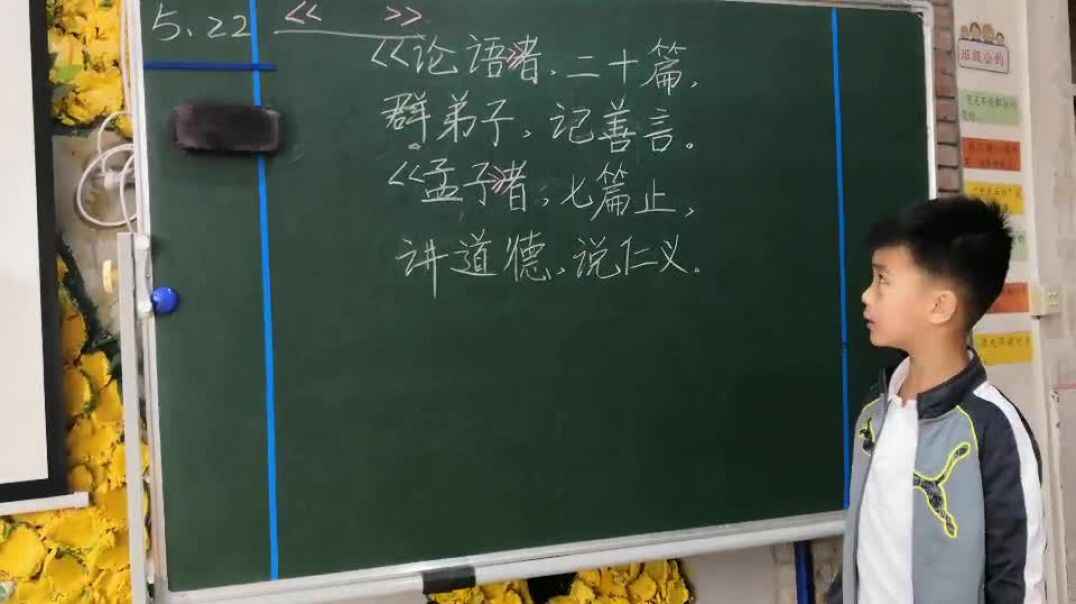 5.22 《 》
《论语》者，二十篇，
群弟子，记善言。
《孟子》者，七篇止，
讲道德，说仁义。
班级公约